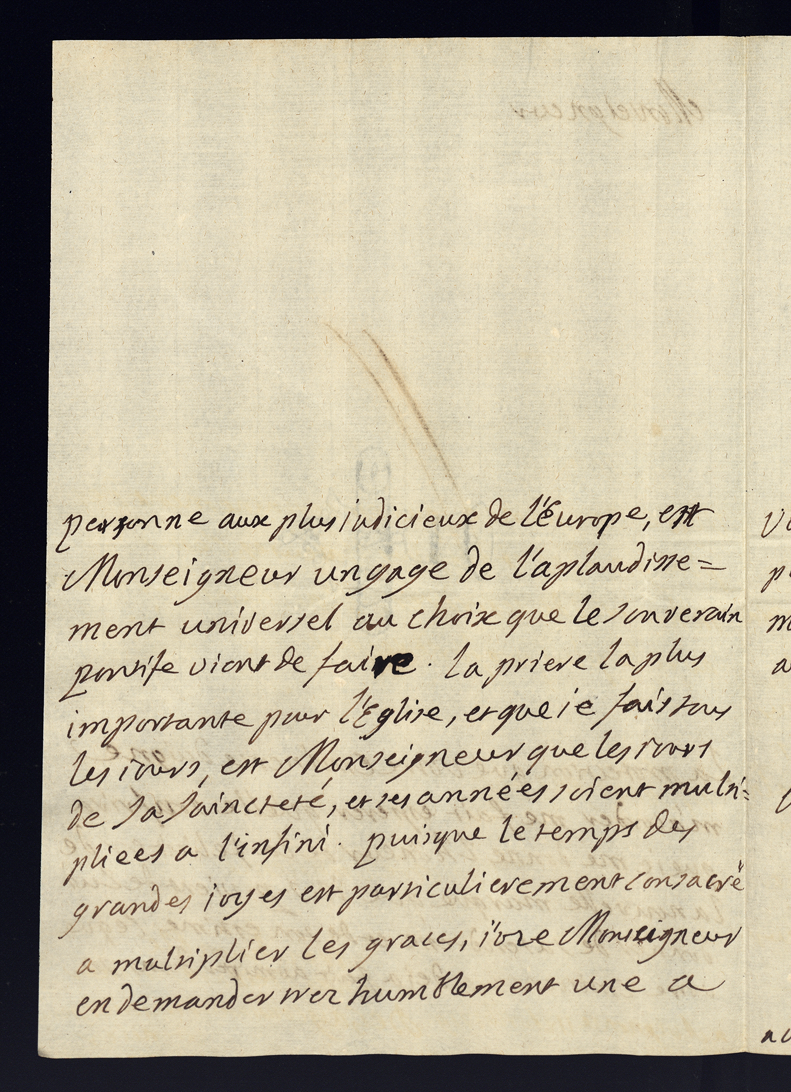 personne aux plus iudicieux de l'Europe, est
Monseigneur un gage de l'aplaudisse=
ment universel au choix que le souverain
pontife vient de faire. la priere la plus
importante pour l'Eglise, et que ie fais tous
les iours, est Monseigneur que les iours
de sa saincteté, et ses années soient multi=
pliees a l'infini. puisque le temps des
grandes ioyes est particulierement consacré
a multiplier les graces, i'oze Monseigneur
en demander tres humblement une a